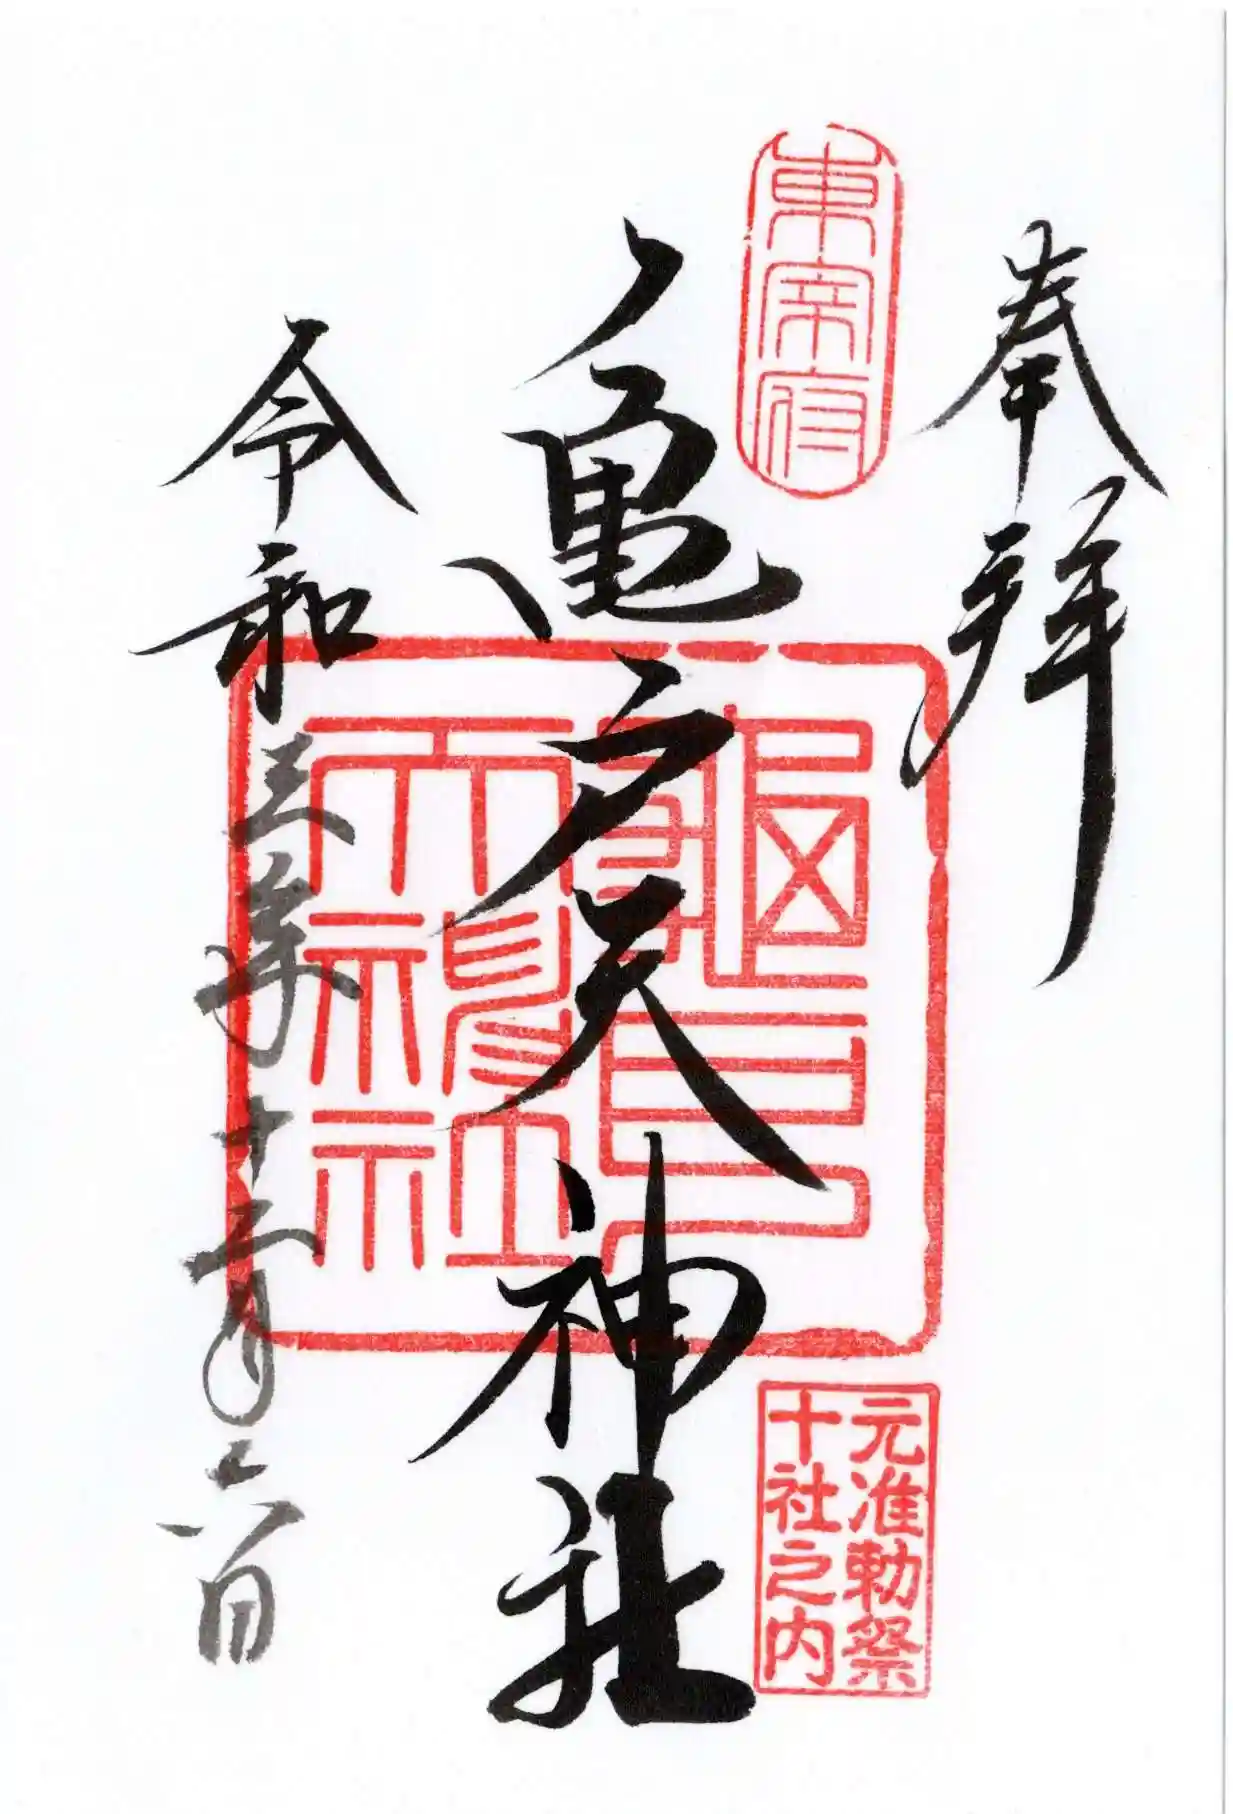 奉拝
東宰府
亀戸天神社
龜戸
天神社
元准勅祭
十社之内
令和三年十二月六日